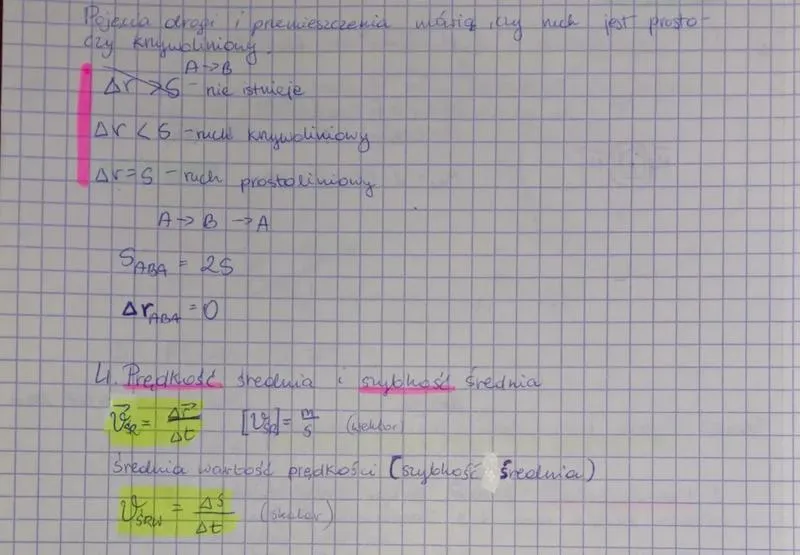 Pojęcia drogi i przemieszczenia mówią, czy ruch jest prosto-
czy krzywoliniowy.
A→B
Δr > S - nie istnieje
Δr < S - ruch krzywoliniowy
Δr = S - ruch prostoliniowy
A → B → A
S_ABA = 2S
Δr_ABA = 0
4. Prędkość średnia i szybkość średnia
v⃗_śr = Δr⃗/Δt [v_śr] = m/s (wektor)
średnia wartość prędkości (szybkość średnia)
v_śrw = ΔS/Δt (skalar)